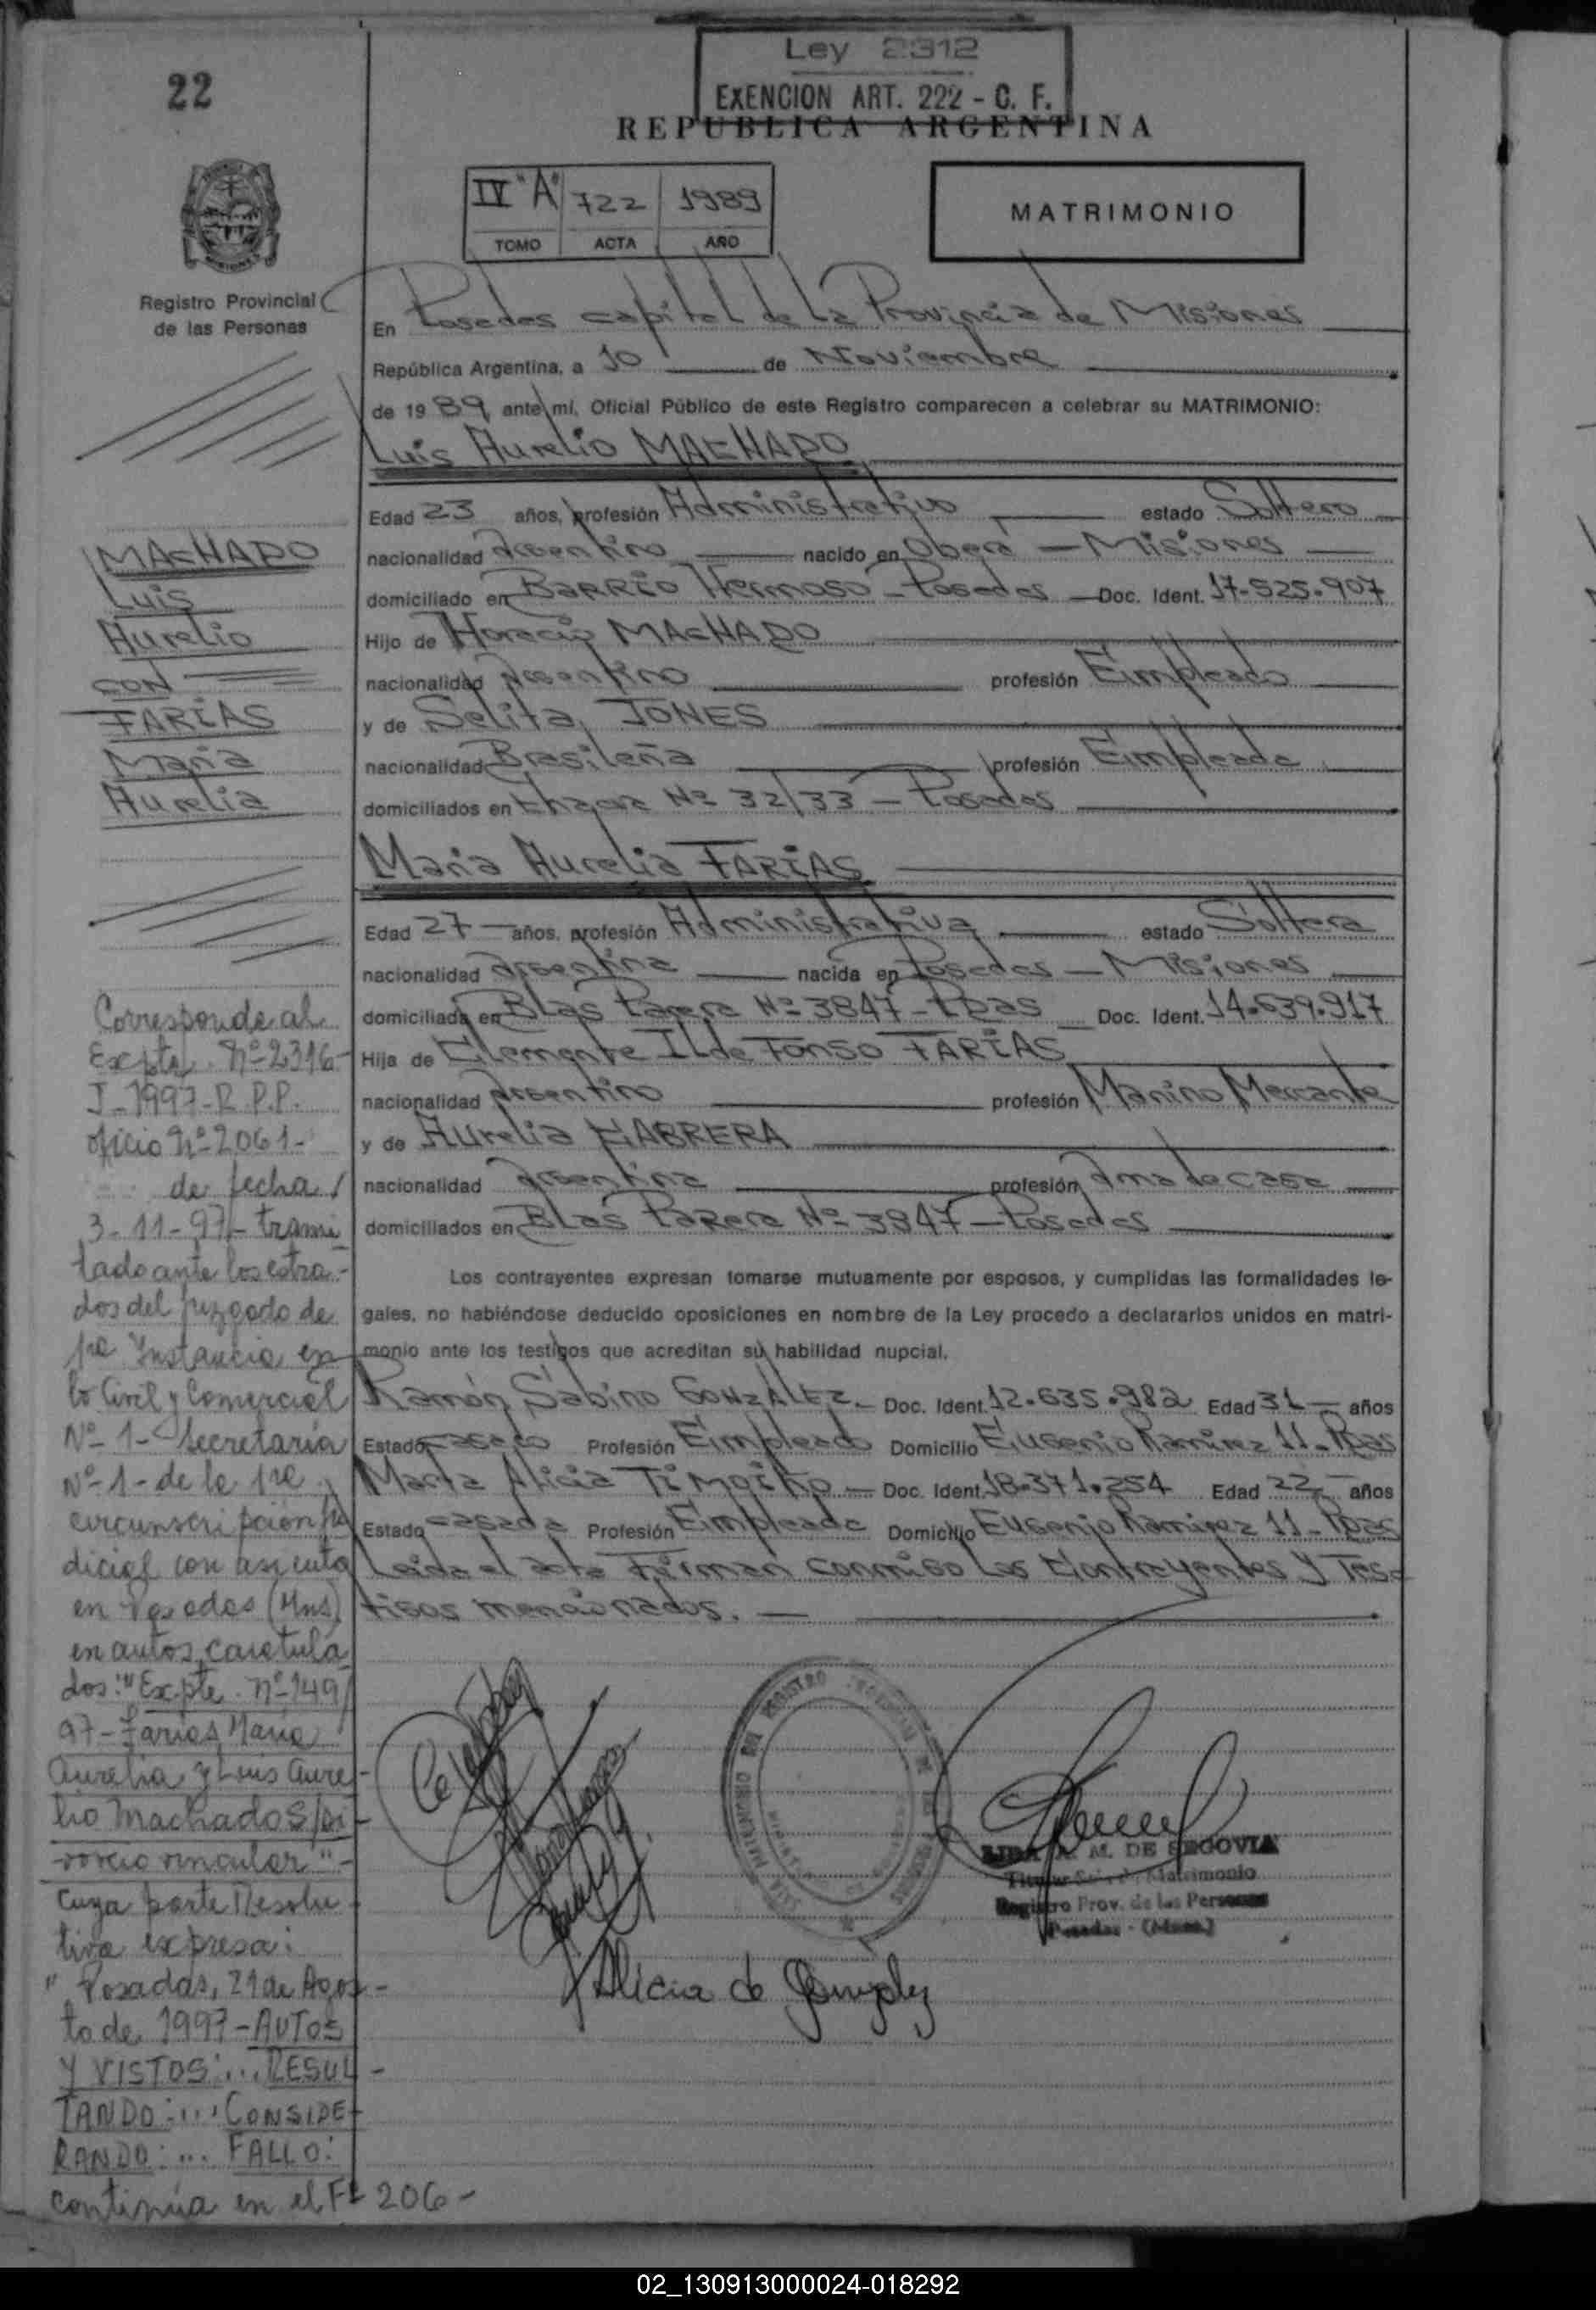 22
Ley 2312
EXENCION ART. 222 - C. F.
REPUBLICA ARGENTINA
IV "A" 722 1989
TOMO ACTA AÑO
MATRIMONIO
Registro Provincial
de las Personas
En Posadas capital de La Provincia de Misiones
República Argentina, a 10 de Noviembre
de 1989 ante mí, Oficial Público de este Registro comparecen a celebrar su MATRIMONIO:
Luis Aurelio MACHADO
Edad 23 años, profesión Administrativo estado Soltero
nacionalidad Argentino nacido en Oberá - Misiones
domiciliado en BARRIO Hermoso - Posadas - Doc. Ident. 17.525.907
Hijo de Horacio MACHADO
nacionalidad Argentino profesión Empleado
y de Selita JONES
nacionalidad Brasileña profesión Empleada
domiciliados en Nº 32/33 - Posadas
María Aurelia FARIAS
Edad 27 - años, profesión Administrativa estado Soltera
nacionalidad Argentina nacida en Posadas - Misiones
domiciliada en Blas Parera Nº 3847 - Pdas Doc. Ident. 14.639.917
Hija de Clemente ILdeFonso FARIAS
nacionalidad Argentino profesión Marino Mercante
y de Aurelia CABRERA
nacionalidad Argentina profesión Ama de casa
domiciliados en BLas PaRera Nº 3847 - Posadas
Los contrayentes expresan tomarse mutuamente por esposos, y cumplidas las formalidades le-
gales, no habiéndose deducido oposiciones en nombre de la Ley procedo a declararlos unidos en matri-
monio ante los testigos que acreditan su habilidad nupcial.
Ramón Sabino GONZALEZ - Doc. Ident. 12.635.982 Edad 31 - años
Estado casado Profesión Empleado Domicilio Eugenio Ramirez 11 - Pdas
Marta Alicia TiMOiKo - Doc. Ident. 18.371.254 Edad 22 - años
Estado casada Profesión Empleada Domicilio Eugenio Ramirez 11 - Pdas
Leida el acta Firman conmigo Los Contrayentes y Tes-
tigos mencionados. -
MACHADO
Luis
Aurelio
CON
FARIAS
María
Aurelia
Corresponde al
Expte. Nº 2316-
J-1997-R.P.P.
oficio Nº 2061-
de fecha
3-11-97- trami
tado ante los estra-
dos del juzgado de
1ra Instancia en
lo Civil y Comercial
Nº 1- Secretaria
Nº 1- de la 1ra
circunscripción Ju
dicial con asiento
en Posadas (Mns)
en autos caratula
dos: "Expte. nº 149/
97- Farias María
Aurelia y Luis Aure-
lio Machado S/di-
vorcio vincular".-
Cuya parte Resolu-
tiva expresa:
" Posadas, 21 de Agos-
to de 1997 - AUTOS
Y VISTOS:... RESUL-
TANDO:... CONSIDE-
RANDO:... FALLO:
continúa en el Fº 206-
Alicia de
M. DE SEGOVIA
Matrimonio
Registro Prov. de las Personas
Posadas - (Mnes.)
02_130913000024-018292